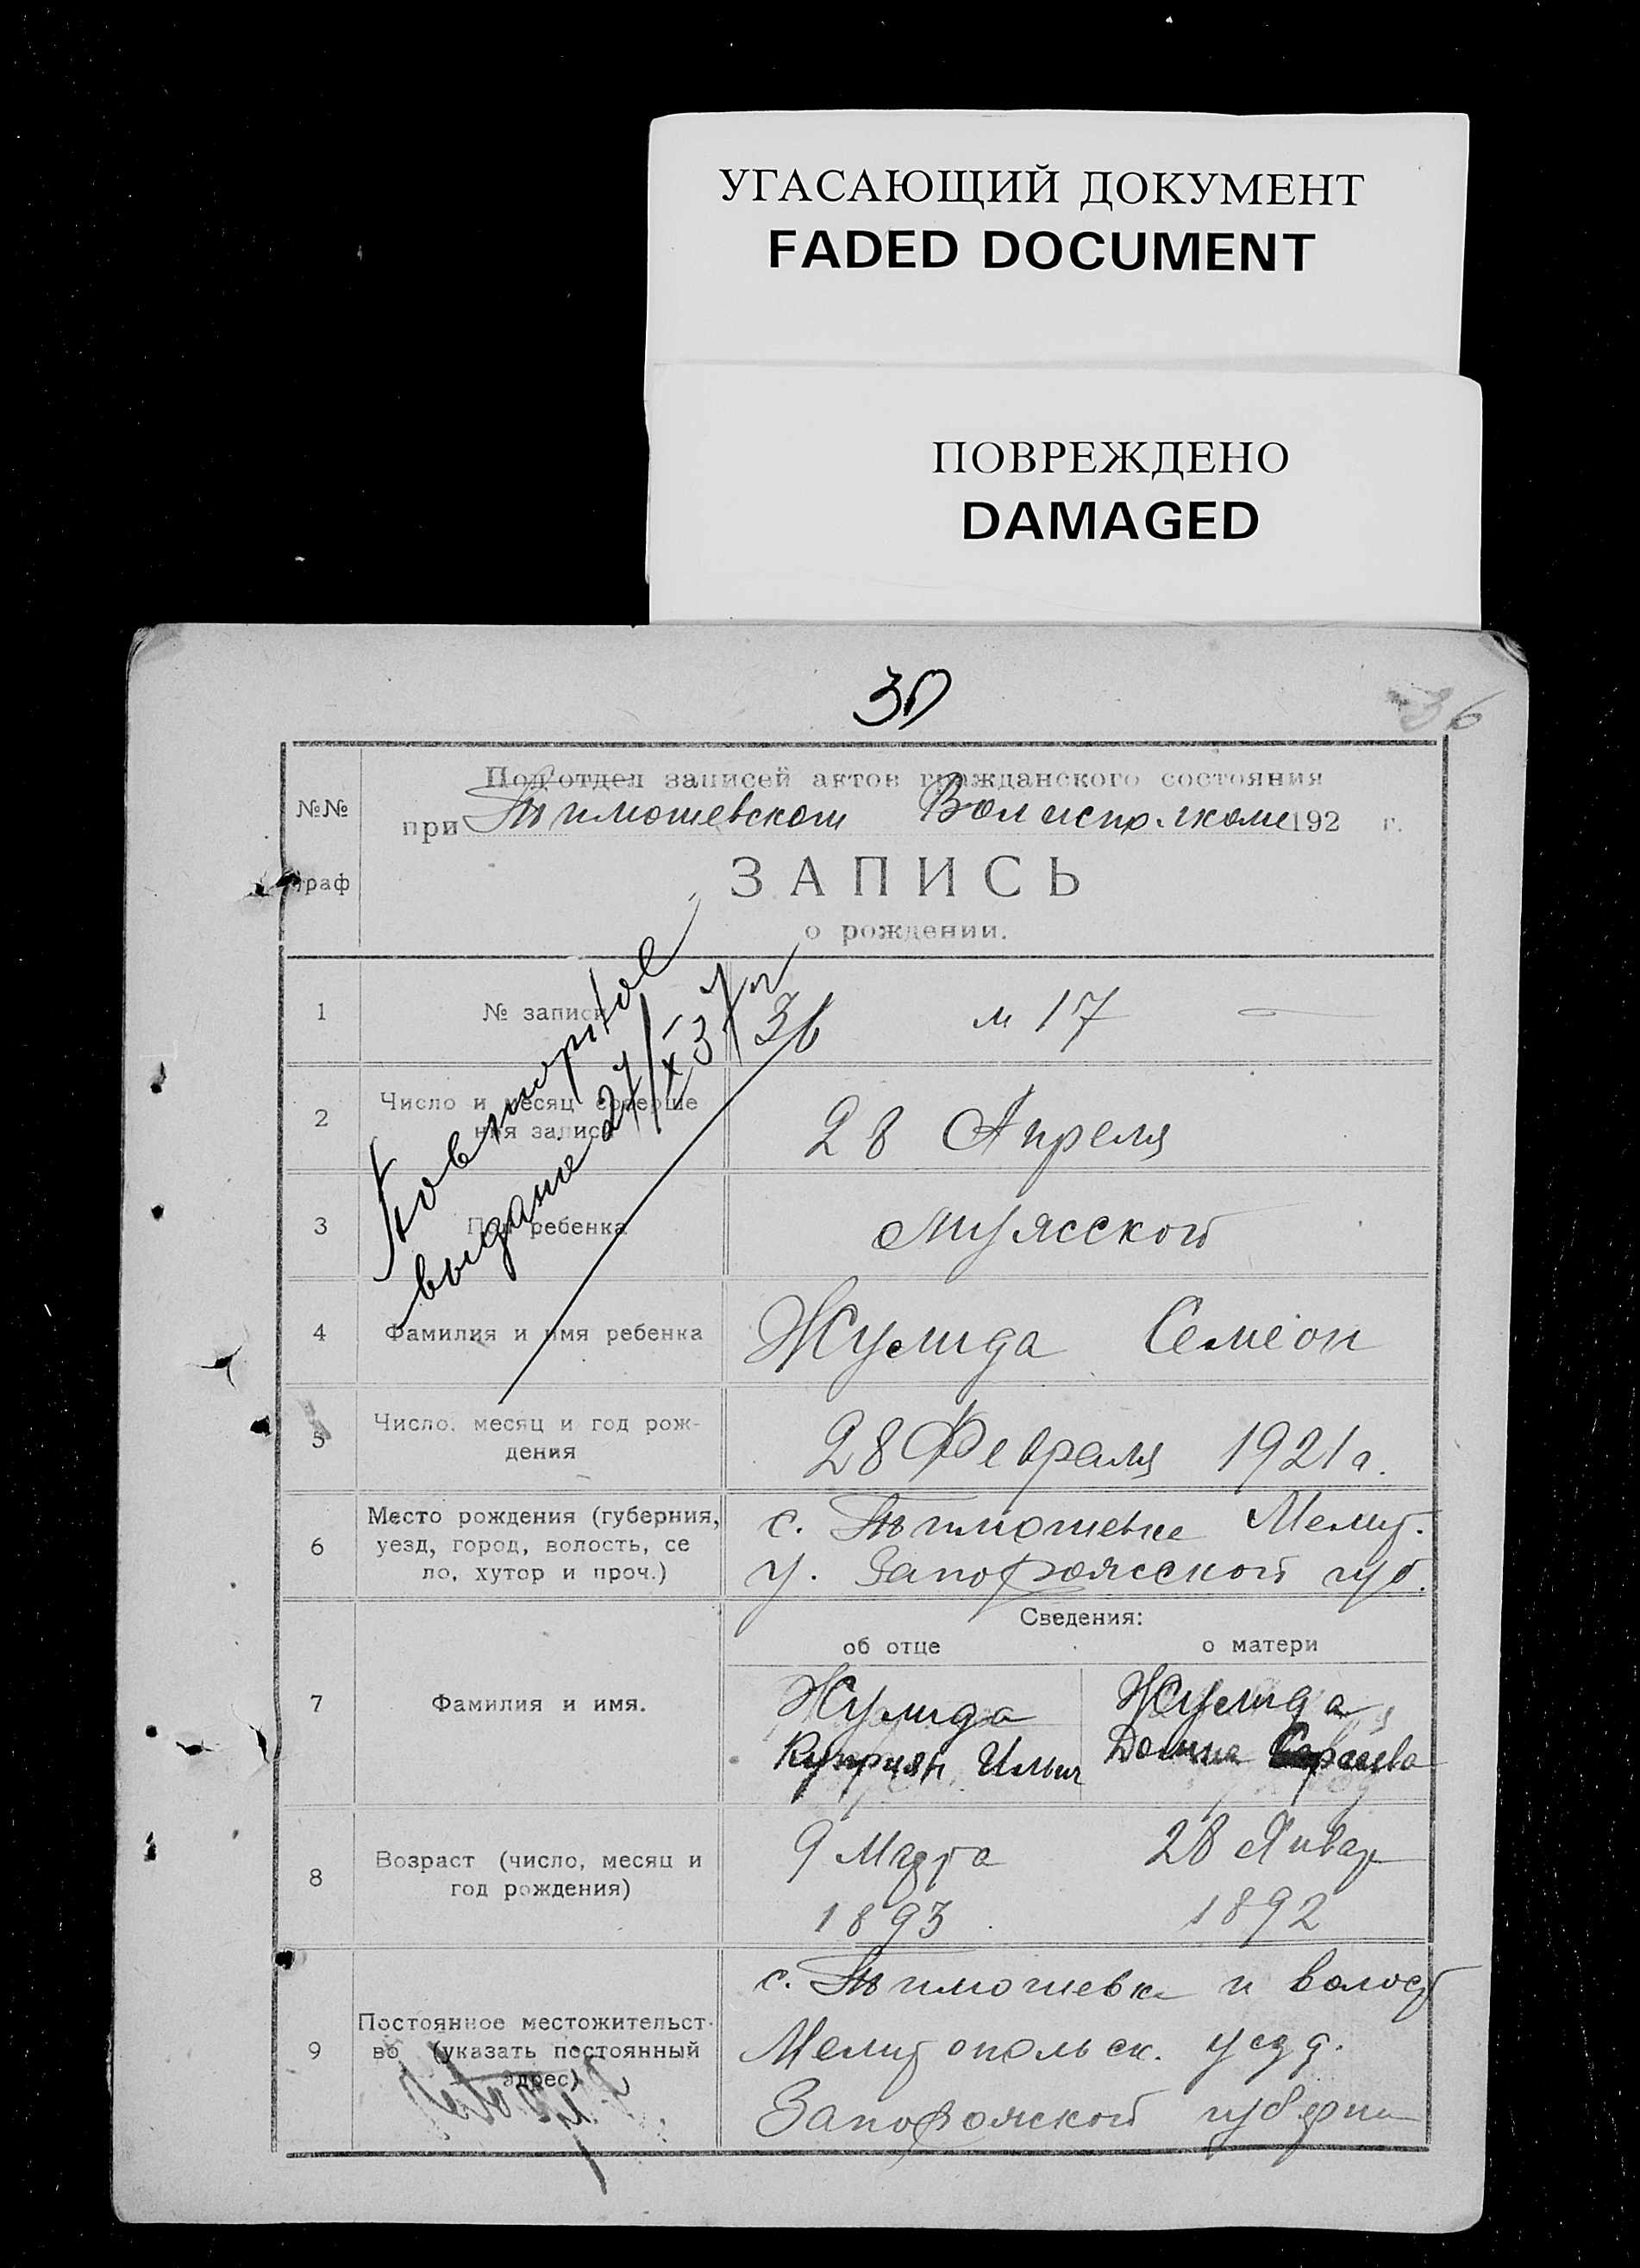 УГАСАЮЩИЙ ДОКУМЕНТ
FADED DOCUMENT
ПОВРЕЖДЕНО
DAMAGED
30
36
№№
граф
Подотдел записей актов гражданского состояния
при Тимошевском Волисполкоме 192 г.
ЗАПИСЬ
о рождении.
Повторное
выдано 27/IX 37 г
36
1 № записи м 17
2 Число и месяц соверше
ния записи 28 Апреля
3 Пол ребенка Мужской
4 Фамилия и имя ребенка Жулида Семеон
5 Число, месяц и год рож-
дения 28 Февраля 1921 г.
6 Место рождения (губерния,
уезд, город, волость, се
ло, хутор и проч.)
с. Тимошевке Мелит.
у. Запорожской губ.
Сведения:
об отце о матери
7 Фамилия и имя.
Жулида Жулида
Куприян Ильич Домна
8 Возраст (число, месяц и
год рождения)
9 Марта 28 Январ
1893 1892
9 Постоянное местожительст-
во (указать постоянный
адрес)
с. Тимошевка и волост
Мелитопольск. уезд.
Запорожской губерни